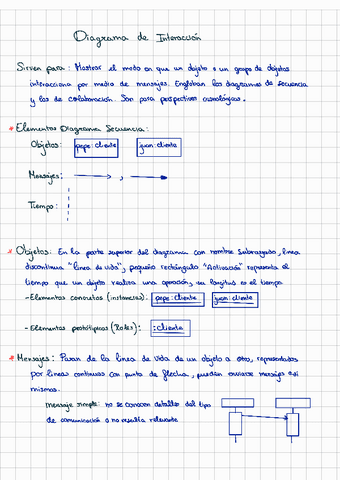 Diagrama de Interacción
Sirven para: Mostrar el modo en que un objeto o un grupo de objetos
interacciona por medio de mensajes. Engloban los diagramas de secuencia
y los de colaboración. Son para perspectivas
* Elementos Diagrama Secuencia:
Objetos: pepe:cliente juan:cliente
Mensajes: ,
Tiempo:
* Objetos: En la parte superior del diagrama con nombre subrayado, linea
discontinua "linea de vida", pequeño rectángulo "Activación" representa el
tiempo que un objeto realiza una operación, su longitud es el tiempo
- Elementos concretos (instancias): pepe:cliente juan:cliente
- Elementos prototípicos (Roles): :cliente
* Mensajes: Pasan de la linea de vida de un objeto a otro, representados
por lineas continuas con punta de flecha, pueden enviarse mensajes a si
mismos.
mensaje simple: no se conocen detalles del tipo
de comunicación o no resulta relevante